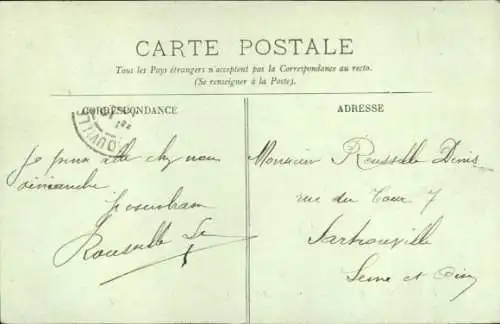 CARTE POSTALE
Tous les Pays étrangers n'acceptent pas la Correspondance au recto.
(Se renseigner à la Poste).
CORRESPONDANCE
Je pense aller chez nous
dimanche
Rousselle
ADRESSE
Monsieur Rousselle Denis
rue du Tour 7
Sartrouville
Seine et Oise